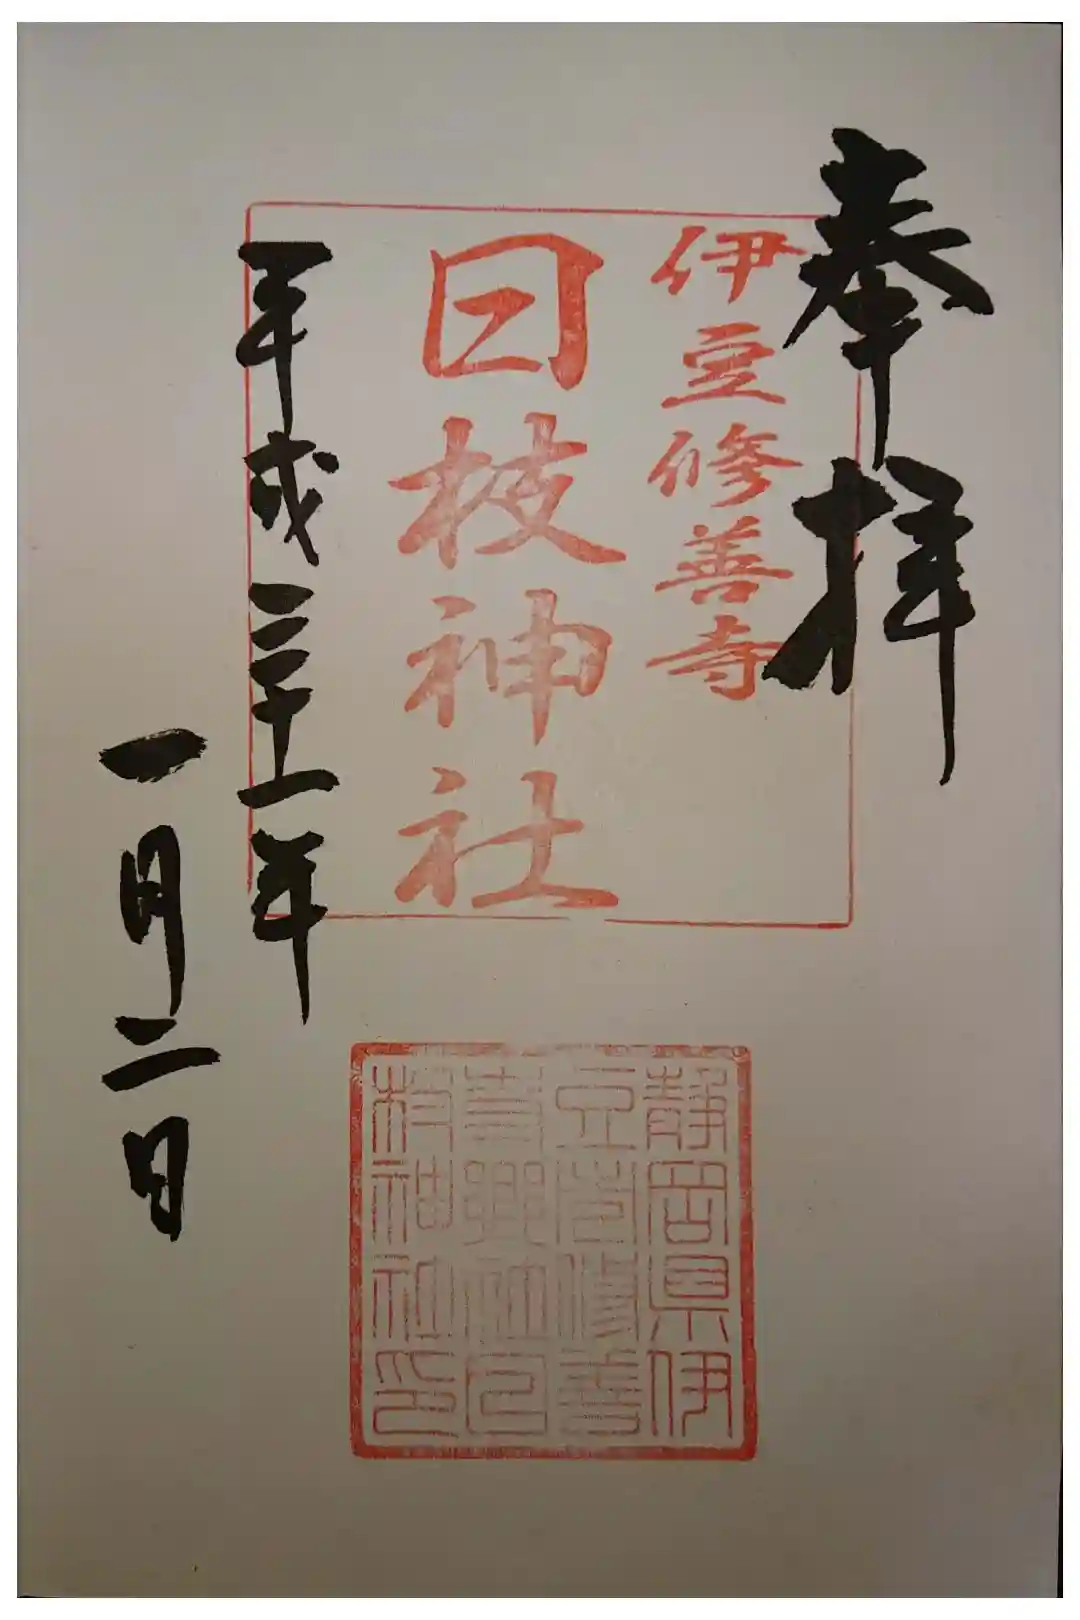 奉拝
伊豆修善寺
日枝神社
平成三十一年
一月二日
静岡県伊
豆修善
寺郷社日
枝神社印